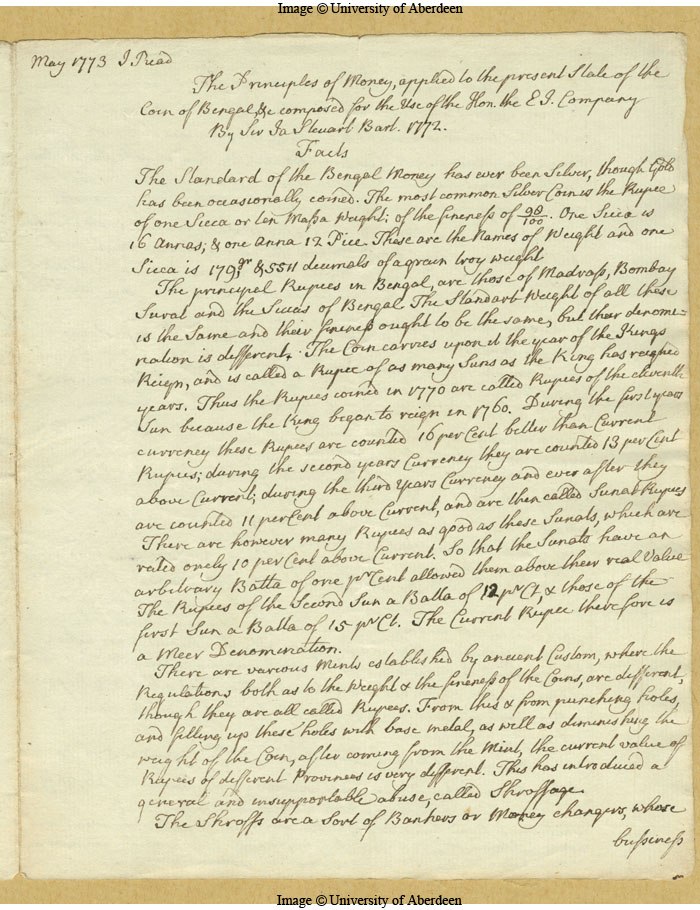 Image © University of Aberdeen
May 1773 I Read
The Principles of Money, applied to the present State of the
Coin of Bengal, &c composed for the Use of the Hon. the E I. Company
By Sir Ja Steuart Bart. 1772.
Facts
The Standard of the Bengal Money has ever been Silver, though Gold
has been occasionally coined. The most common Silver Coin is the Rupee
of one Sicca or ten Massa Weight; of the fineness of 98/100. One Sicca is
16 Annas; & one Anna 12 Pice. These are the Names of Weight and one
Sicca is 179 gr & 5511 decimals of a grain troy weight
The principal Rupees in Bengal, are those of Madrass, Bombay
Surat and the Siccas of Bengal The Standart Weight of all these
is the Same and their fineness ought to be the same, but their denomi-
nation is different. The Coin carries upon it the year of the Kings
Reign, and is called a Rupee of as many Suns as the King has reigned
years. Thus the Rupees coined in 1770 are called Rupees of the eleventh
Sun because the King began to reign in 1760. During the first years
currency these Rupees are counted 16 per Cent better than Current
Rupees; during the second years Currency they are counted 13 per Cent
above Current; during the third Years Currency and ever after they
are counted 11 per Cent above Current, and are then called Sunat Rupees
There are however many Rupees as good as these Sunats, which are
rated onely 10 per Cent above Current. So that the Sunats have an
arbitrary Batta of one pr Cent allowed them above their real Value
The Rupees of the Second Sun a Batta of 12 pr Ct, & those of the
first Sun a Batta of 15 pr Ct. The Current Rupee therefore is
a Meer Denomination.
There are various Mints established by ancient Custom, where the
Regulations both as to the Weight & the fineness of the Coins, are different,
though they are all called Rupees. From this & from punching holes,
and filling up these holes with base metal, as well as diminishing the
weight of the Coin, after coming from the Mint, the current value of
Rupees of different Provinces is very different. This has introduced a
general and insupportable abuse, called Shroffage
The Shroffs are a Sort of Bankers or Money changers, whose
bussiness
Image © University of Aberdeen